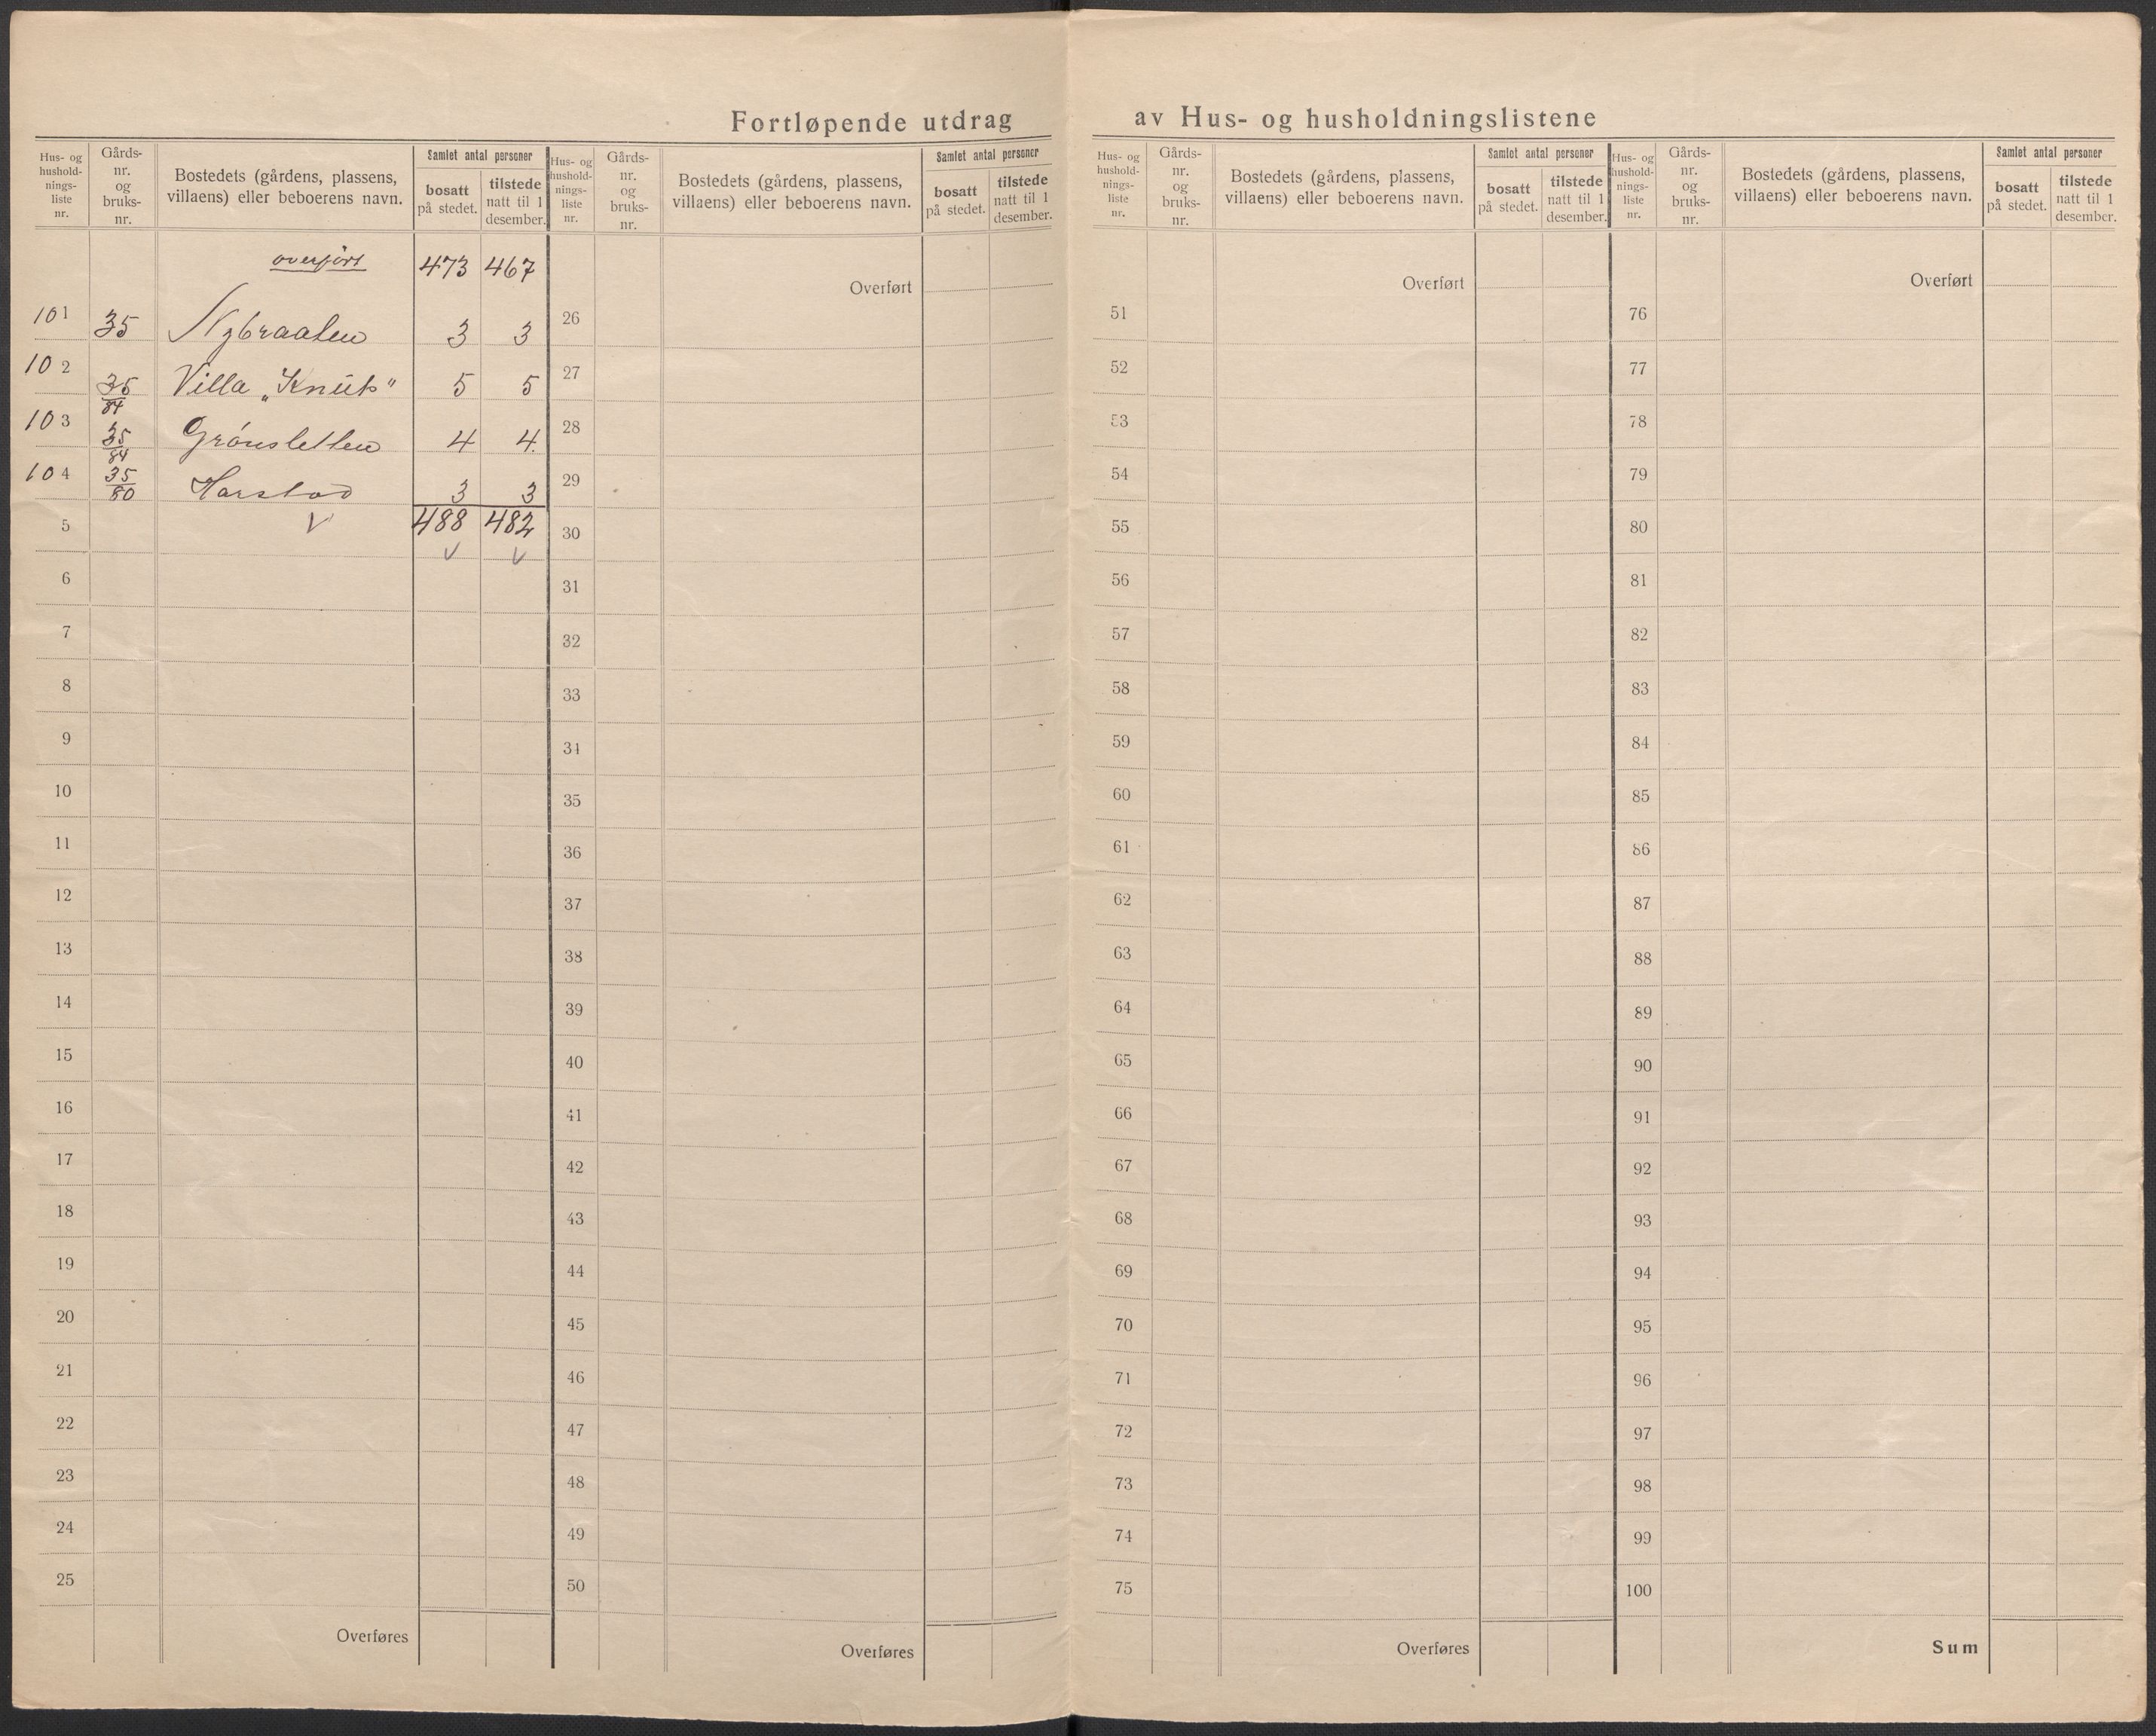 Fortløpende utdrag av Hus- og husholdningslistene
Hus- og hushold-nings-liste nr. Gårds-nr. og bruks-nr. Bostedets (gårdens, plassens, villaens) eller beboerens navn. Samlet antal personer bosatt på stedet. tilstede natt til 1 desember.
overført 473 467
101 35 Nybraaten 3 3
102 35/84 Villa „Knut" 5 5
103 35/84 Grønsletten 4 4.
104 35/80 Harstad 3 3
5 V 488 482
V V
6
7
8
9
10
11
12
13
14
15
16
17
18
19
20
21
22
23
24
25
Overføres
Hus- og hushold-nings-liste nr. Gårds-nr. og bruks-nr. Bostedets (gårdens, plassens, villaens) eller beboerens navn. Samlet antal personer bosatt på stedet. tilstede natt til 1 desember.
Overført
26
27
28
29
30
31
32
33
34
35
36
37
38
39
40
41
42
43
44
45
46
47
48
49
50
Overføres
Hus- og hushold-nings-liste nr. Gårds-nr. og bruks-nr. Bostedets (gårdens, plassens, villaens) eller beboerens navn. Samlet antal personer bosatt på stedet. tilstede natt til 1 desember.
Overført
51
52
53
54
55
56
57
58
59
60
61
62
63
64
65
66
67
68
69
70
71
72
73
74
75
Overføres
Hus- og hushold-nings-liste nr. Gårds-nr. og bruks-nr. Bostedets (gårdens, plassens, villaens) eller beboerens navn. Samlet antal personer bosatt på stedet. tilstede natt til 1 desember.
Overført
76
77
78
79
80
81
82
83
84
85
86
87
88
89
90
91
92
93
94
95
96
97
98
99
100
Sum